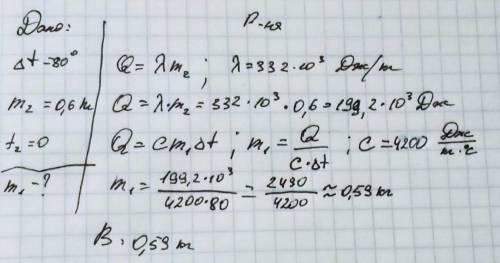 Дано:
Δt = 80°
m₂ = 0,6 кг
t₂ = 0
m₁ - ?
Р-ня
Q = λm₂ ; λ = 332·10³ Дж/кг
Q = λ·m₂ = 332·10³ · 0,6 = 199,2·10³ Дж
Q = cm₁Δt ; m₁ = Q / c·Δt ; C = 4200 Дж / кг·г
m₁ = 199,2·10³ / 4200·80 = 2490 / 4200 ≈ 0,59 кг
В: 0,59 кг